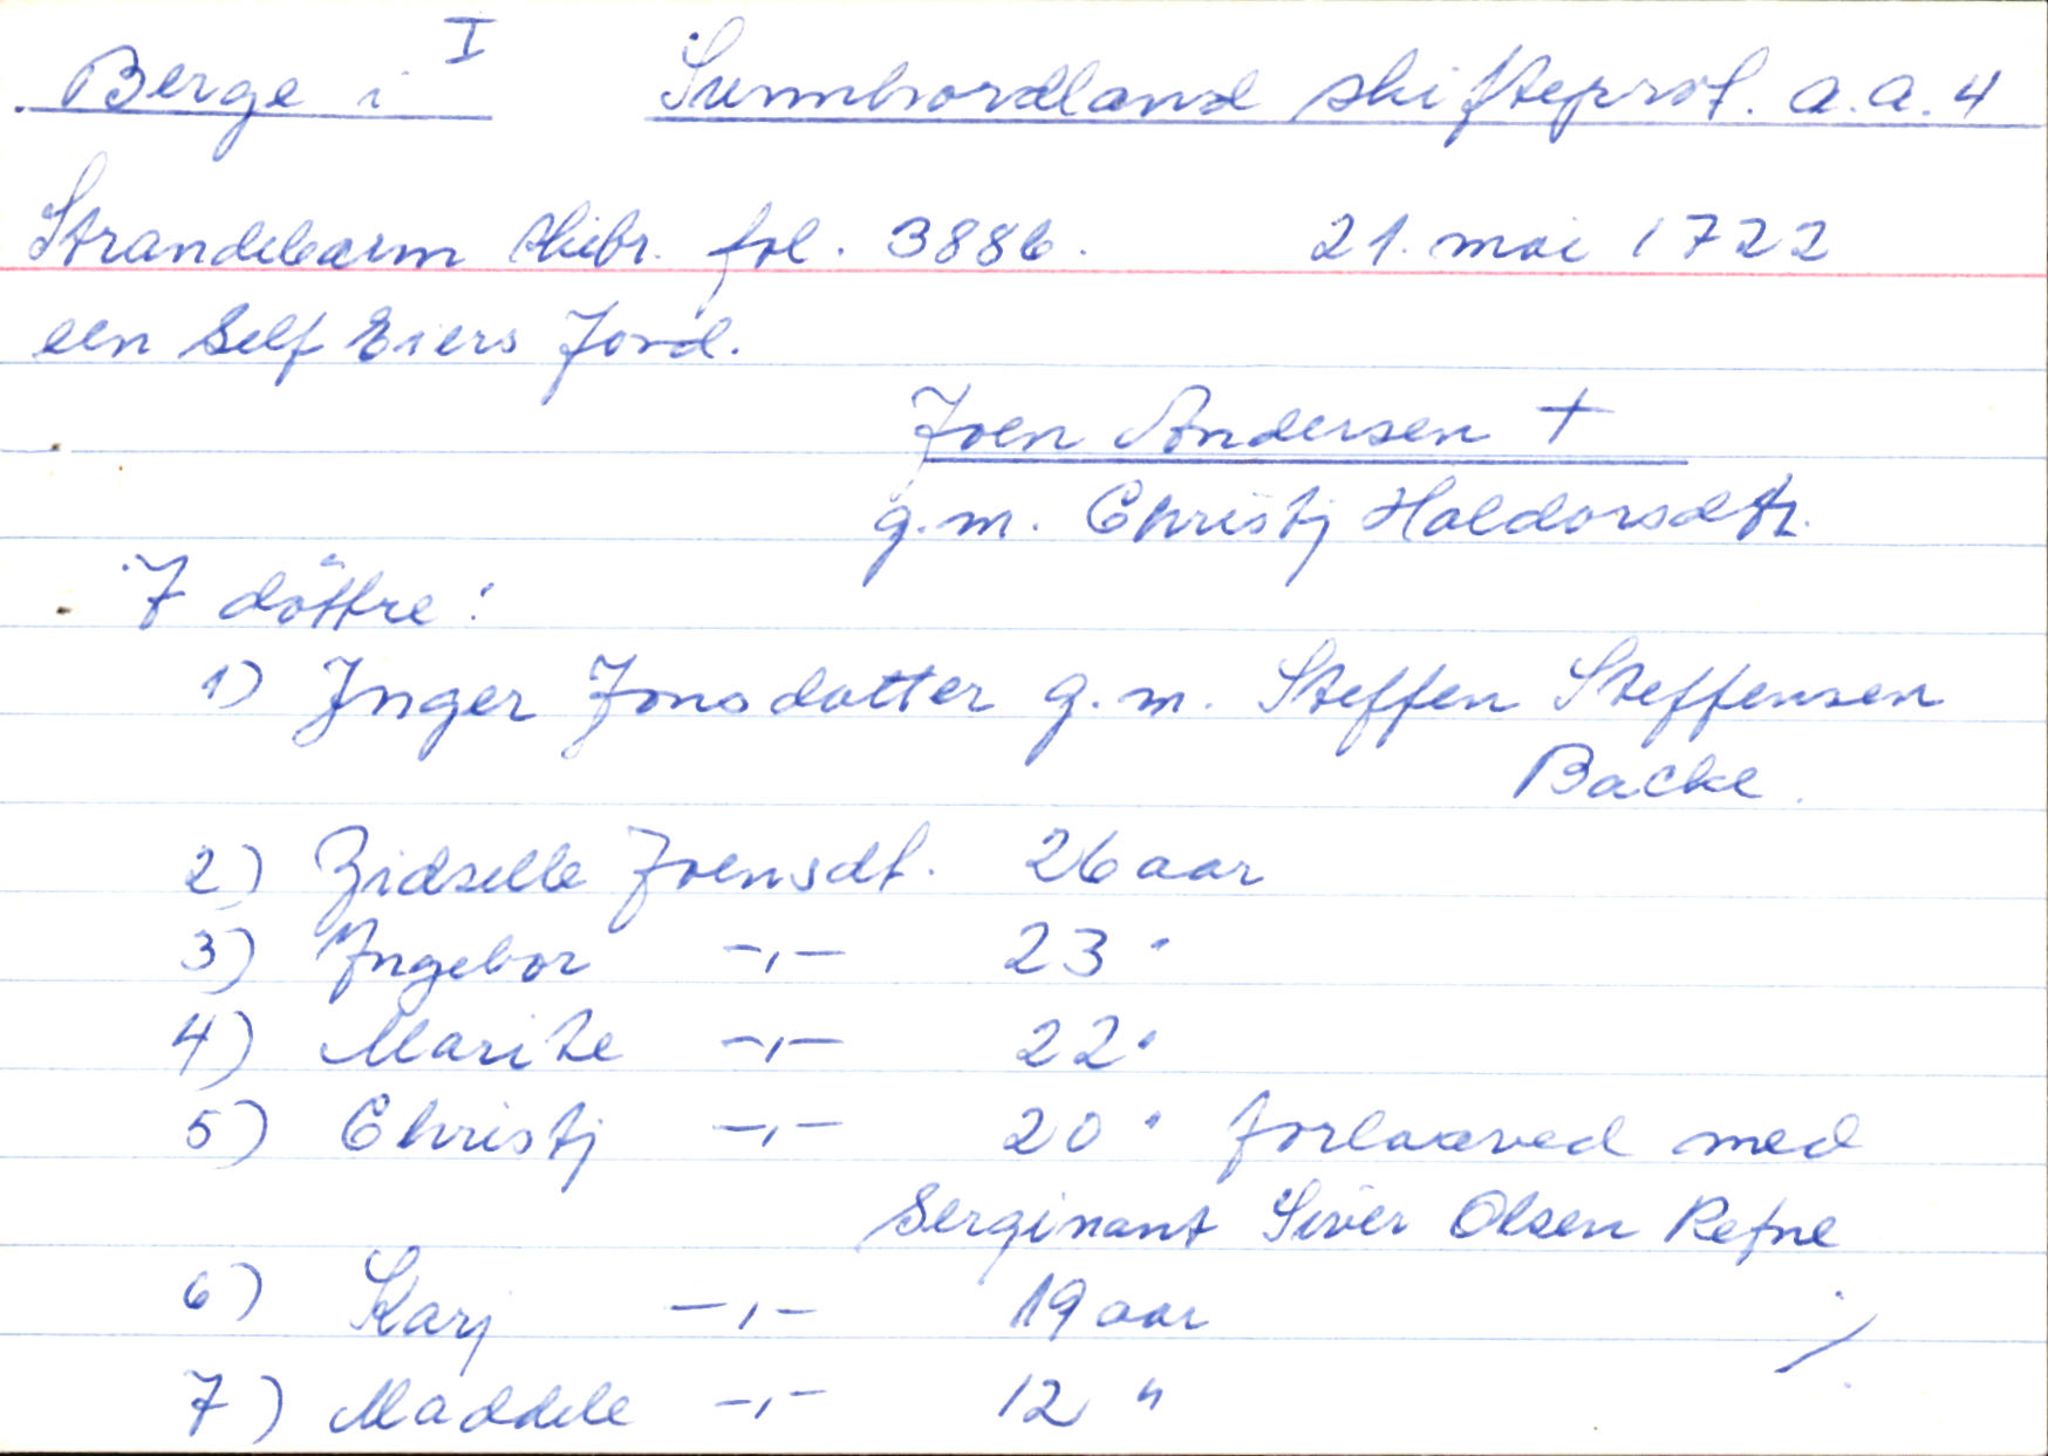 I
Berge i Sunnhordland skifteprot. a.a. 4
Strandebarm skibr. fol. 388b. 21. mai 1722
een Self Eiers Jord.
Joen Andersen +
g.m. Christj Haldorsdtr.
7 döttre:
1) Inger Jonsdatter g.m. Steffen Steffensen
Backe.
2) Zidselle Joensdt. 26 aar
3) Ingebor -,- 23 "
4) Marite -,- 22 "
5) Christj -,- 20 " forlaaved med
Serginant Siver Olsen Refne
6) Karj -,- 19 aar
7) Maddele -,- 12 "